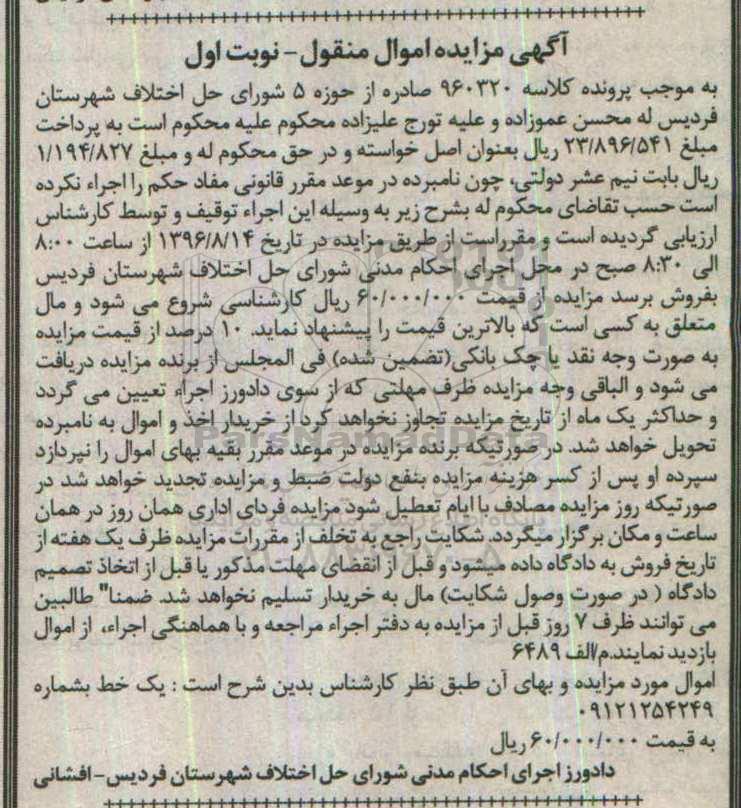 آگهی مزایده اموال منقول - نوبت اول
به موجب پرونده کلاسه ۹۶۰۳۲۰ صادره از حوزه ۵ شورای حل اختلاف شهرستان
فردیس له محسن عموزاده و علیه تورج علیزاده محکوم علیه محکوم است به پرداخت
مبلغ ۲۳/۸۹۶/۵۴۱ ریال بعنوان اصل خواسته و در حق محکوم له و مبلغ ۱/۱۹۴/۸۲۷
ریال بابت نیم عشر دولتی، چون نامبرده در موعد مقرر قانونی مفاد حکم را اجراء نکرده
است حسب تقاضای محکوم له بشرح زیر به وسیله این اجراء توقیف و توسط کارشناس
ارزیابی گردیده است و مقرراست از طریق مزایده در تاریخ ۱۳۹۶/۸/۱۴ از ساعت ۸:۰۰
الی ۸:۳۰ صبح در محل اجرای احکام مدنی شورای حل اختلاف شهرستان فردیس
بفروش برسد مزایده از قیمت ۶۰/۰۰۰/۰۰۰ ریال کارشناسی شروع می شود و مال
متعلق به کسی است که بالاترین قیمت را پیشنهاد نماید. ۱۰ درصد از قیمت مزایده
به صورت وجه نقد یا چک بانکی(تضمین شده) فی المجلس از برنده مزایده دریافت
می شود و الباقی وجه مزایده ظرف مهلتی که از سوی دادورز اجراء تعیین می گردد
و حداکثر یک ماه از تاریخ مزایده تجاوز نخواهد کرد از خریدار اخذ و اموال به نامبرده
تحویل خواهد شد. در صورتیکه برنده مزایده در موعد مقرر بقیه بهای اموال را نپردازد
سپرده او پس از کسر هزینه مزایده بنفع دولت ضبط و مزایده تجدید خواهد شد در
صورتیکه روز مزایده مصادف با ایام تعطیل شود مزایده فردای اداری همان روز در همان
ساعت و مکان برگزار میگردد. شکایت راجع به تخلف از مقررات مزایده ظرف یک هفته از
تاریخ فروش به دادگاه داده میشود و قبل از انقضای مهلت مذکور یا قبل از اتخاذ تصمیم
دادگاه ( در صورت وصول شکایت) مال به خریدار تسلیم نخواهد شد. ضمنا" طالبین
می توانند ظرف ۷ روز قبل از مزایده به دفتر اجراء مراجعه و با هماهنگی اجراء، از اموال
بازدید نمایند.م/الف ۶۴۸۹
اموال مورد مزایده و بهای آن طبق نظر کارشناس بدین شرح است : یک خط بشماره
۰۹۱۲۱۲۵۴۲۴۹
به قیمت ۶۰/۰۰۰/۰۰۰ ریال
دادورز اجرای احکام مدنی شورای حل اختلاف شهرستان فردیس - افشانی
ParsNamadData